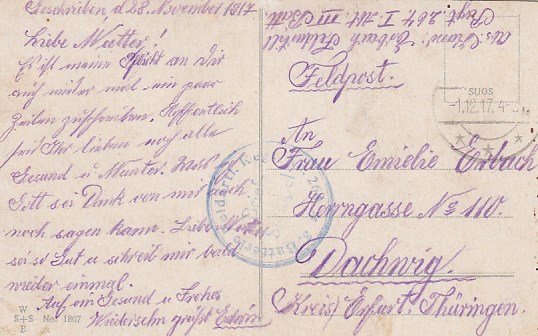 Geschrieben, d 28. November 1917
Liebe Mutter!
Es ist meine Pflicht an Dir
auch wieder mal ein paar
Zeilen zuschreiben. Hoffentlich
seit Ihr lieben noch alle
Gesund u Munter. Was ich
Gott sei Dank von mir auch
noch sagen kann. Liebe Mutter
sei so Gut u schreib mir bald
wieder einmal.
Auf ein Gesund u Frohes
Wiedersehn grüßt Erwin
W
S+S No. 1807
B
Abs: Erbach Feldartill
Regt 267 I. Abt. III Batt
Feldpost.
SUGS
-1.12.17. 4-5
An
Frau Emielie Erbach
Herrngasse No 110.
Dachwig.
Kreis Erfurt. Thüringen.